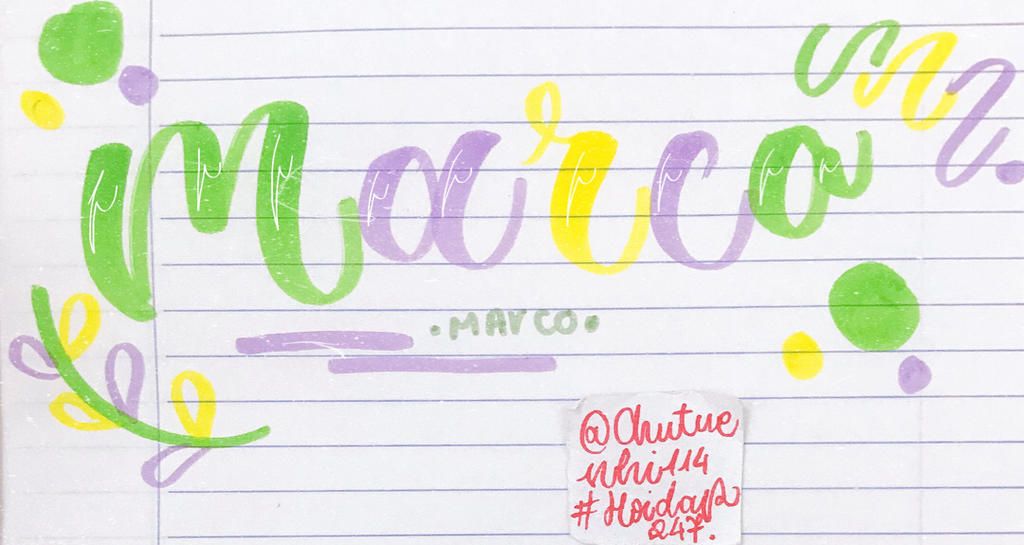 Marco
•MArCO•
@Chutue
nhi1114
#Hoidap
247.